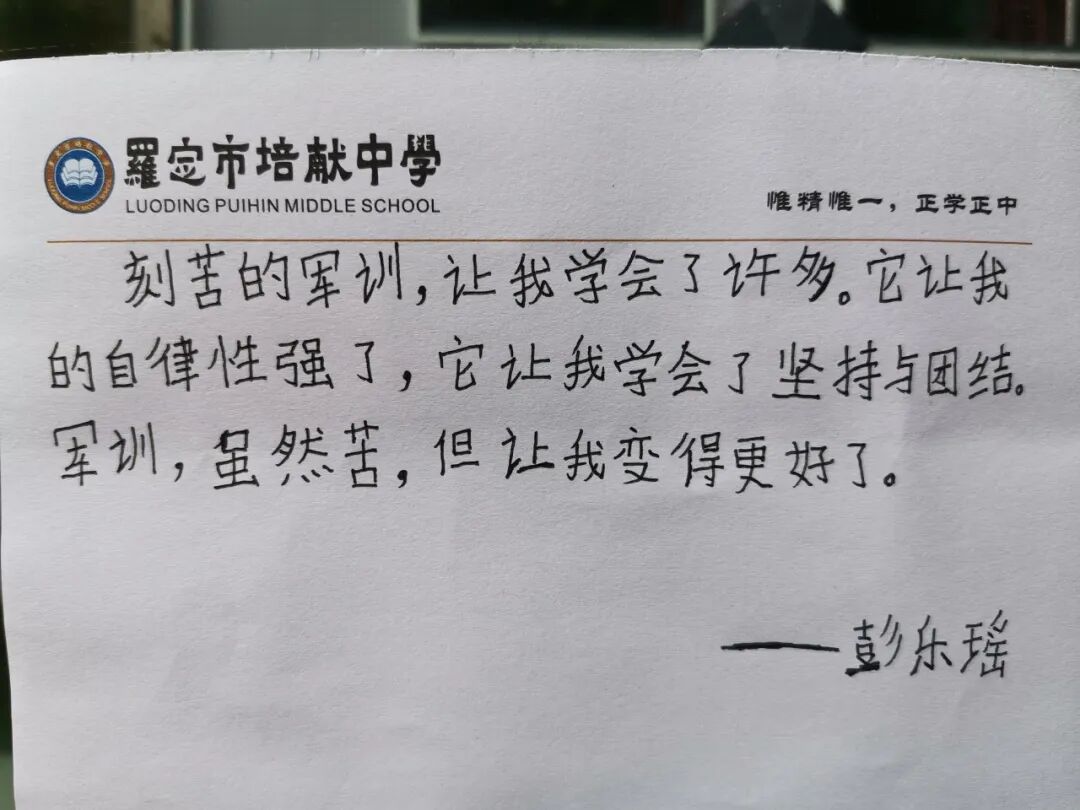 羅定市培献中學
LUODING PUIHIN MIDDLE SCHOOL
惟精惟一，正学正中
刻苦的军训，让我学会了许多。它让我
的自律性强了，它让我学会了坚持与团结。
军训，虽然苦，但让我变得更好了。
——彭乐瑶